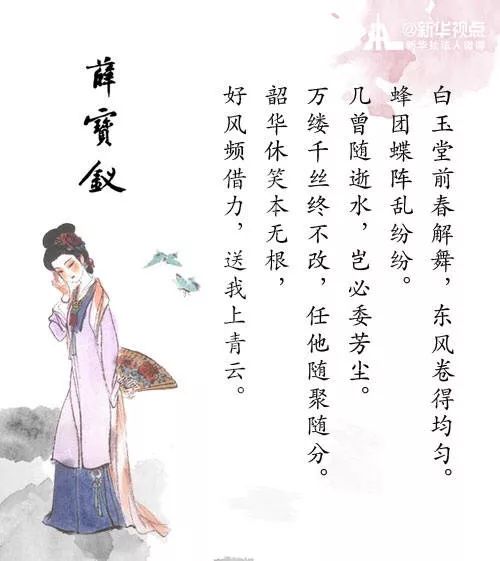 @新华视点
新华社法人微博
薛寶釵
白玉堂前春解舞，东风卷得均匀。
蜂团蝶阵乱纷纷。
几曾随逝水，岂必委芳尘。
万缕千丝终不改，任他随聚随分。
韶华休笑本无根，
好风频借力，送我上青云。